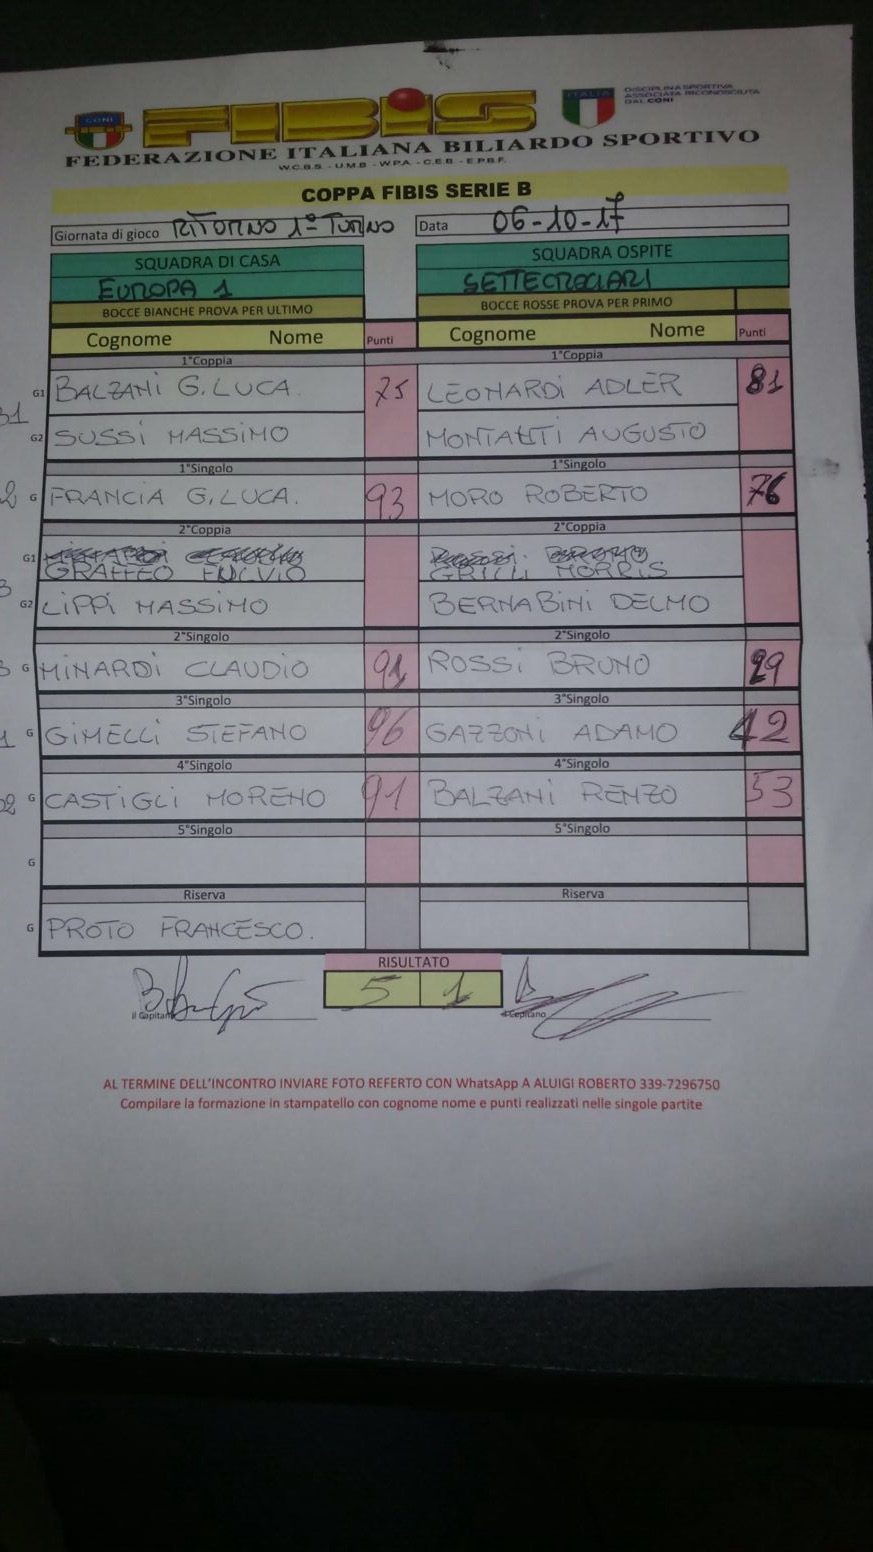 CONI
FIBIS
ITALIA
DISCIPLINA SPORTIVA
ASSOCIATA RICONOSCIUTA
DAL CONI
FEDERAZIONE ITALIANA BILIARDO SPORTIVO
W.C.B.S. - U.M.B - W.P.A. - C.E.B. - E.P.B.F.
COPPA FIBIS SERIE B
Giornata di gioco RITORNO 1° TURNO Data 06-10-17
SQUADRA DI CASA SQUADRA OSPITE
EUROPA 1 SETTECROCIARI
BOCCE BIANCHE PROVA PER ULTIMO BOCCE ROSSE PROVA PER PRIMO
Cognome Nome Punti Cognome Nome Punti
1°Coppia 1°Coppia
G1 BALZANI G.LUCA. 75 LEONARDI ADLER 81
G2 SUSSI MASSIMO MONTALTI AUGUSTO
1°Singolo 1°Singolo
G FRANCIA G,LUCA. 93 MORO ROBERTO 76
2°Coppia 2°Coppia
G1 GRAFFEO FULVIO GRILLI MORRIS
G2 LIPPI MASSIMO BERNABINI DELMO
2°Singolo 2°Singolo
G MINARDI CLAUDIO 91 ROSSI BRUNO 29
3°Singolo 3°Singolo
G GIMELLI STEFANO 96 GAZZONI ADAMO 42
4°Singolo 4°Singolo
G CASTIGLI MORENO 91 BALZANI RENZO 53
5°Singolo 5°Singolo
G
Riserva Riserva
G PROTO FRANCESCO.
RISULTATO
5 1
il Capitano il Capitano
AL TERMINE DELL'INCONTRO INVIARE FOTO REFERTO CON WhatsApp A ALUIGI ROBERTO 339-7296750
Compilare la formazione in stampatello con cognome nome e punti realizzati nelle singole partite